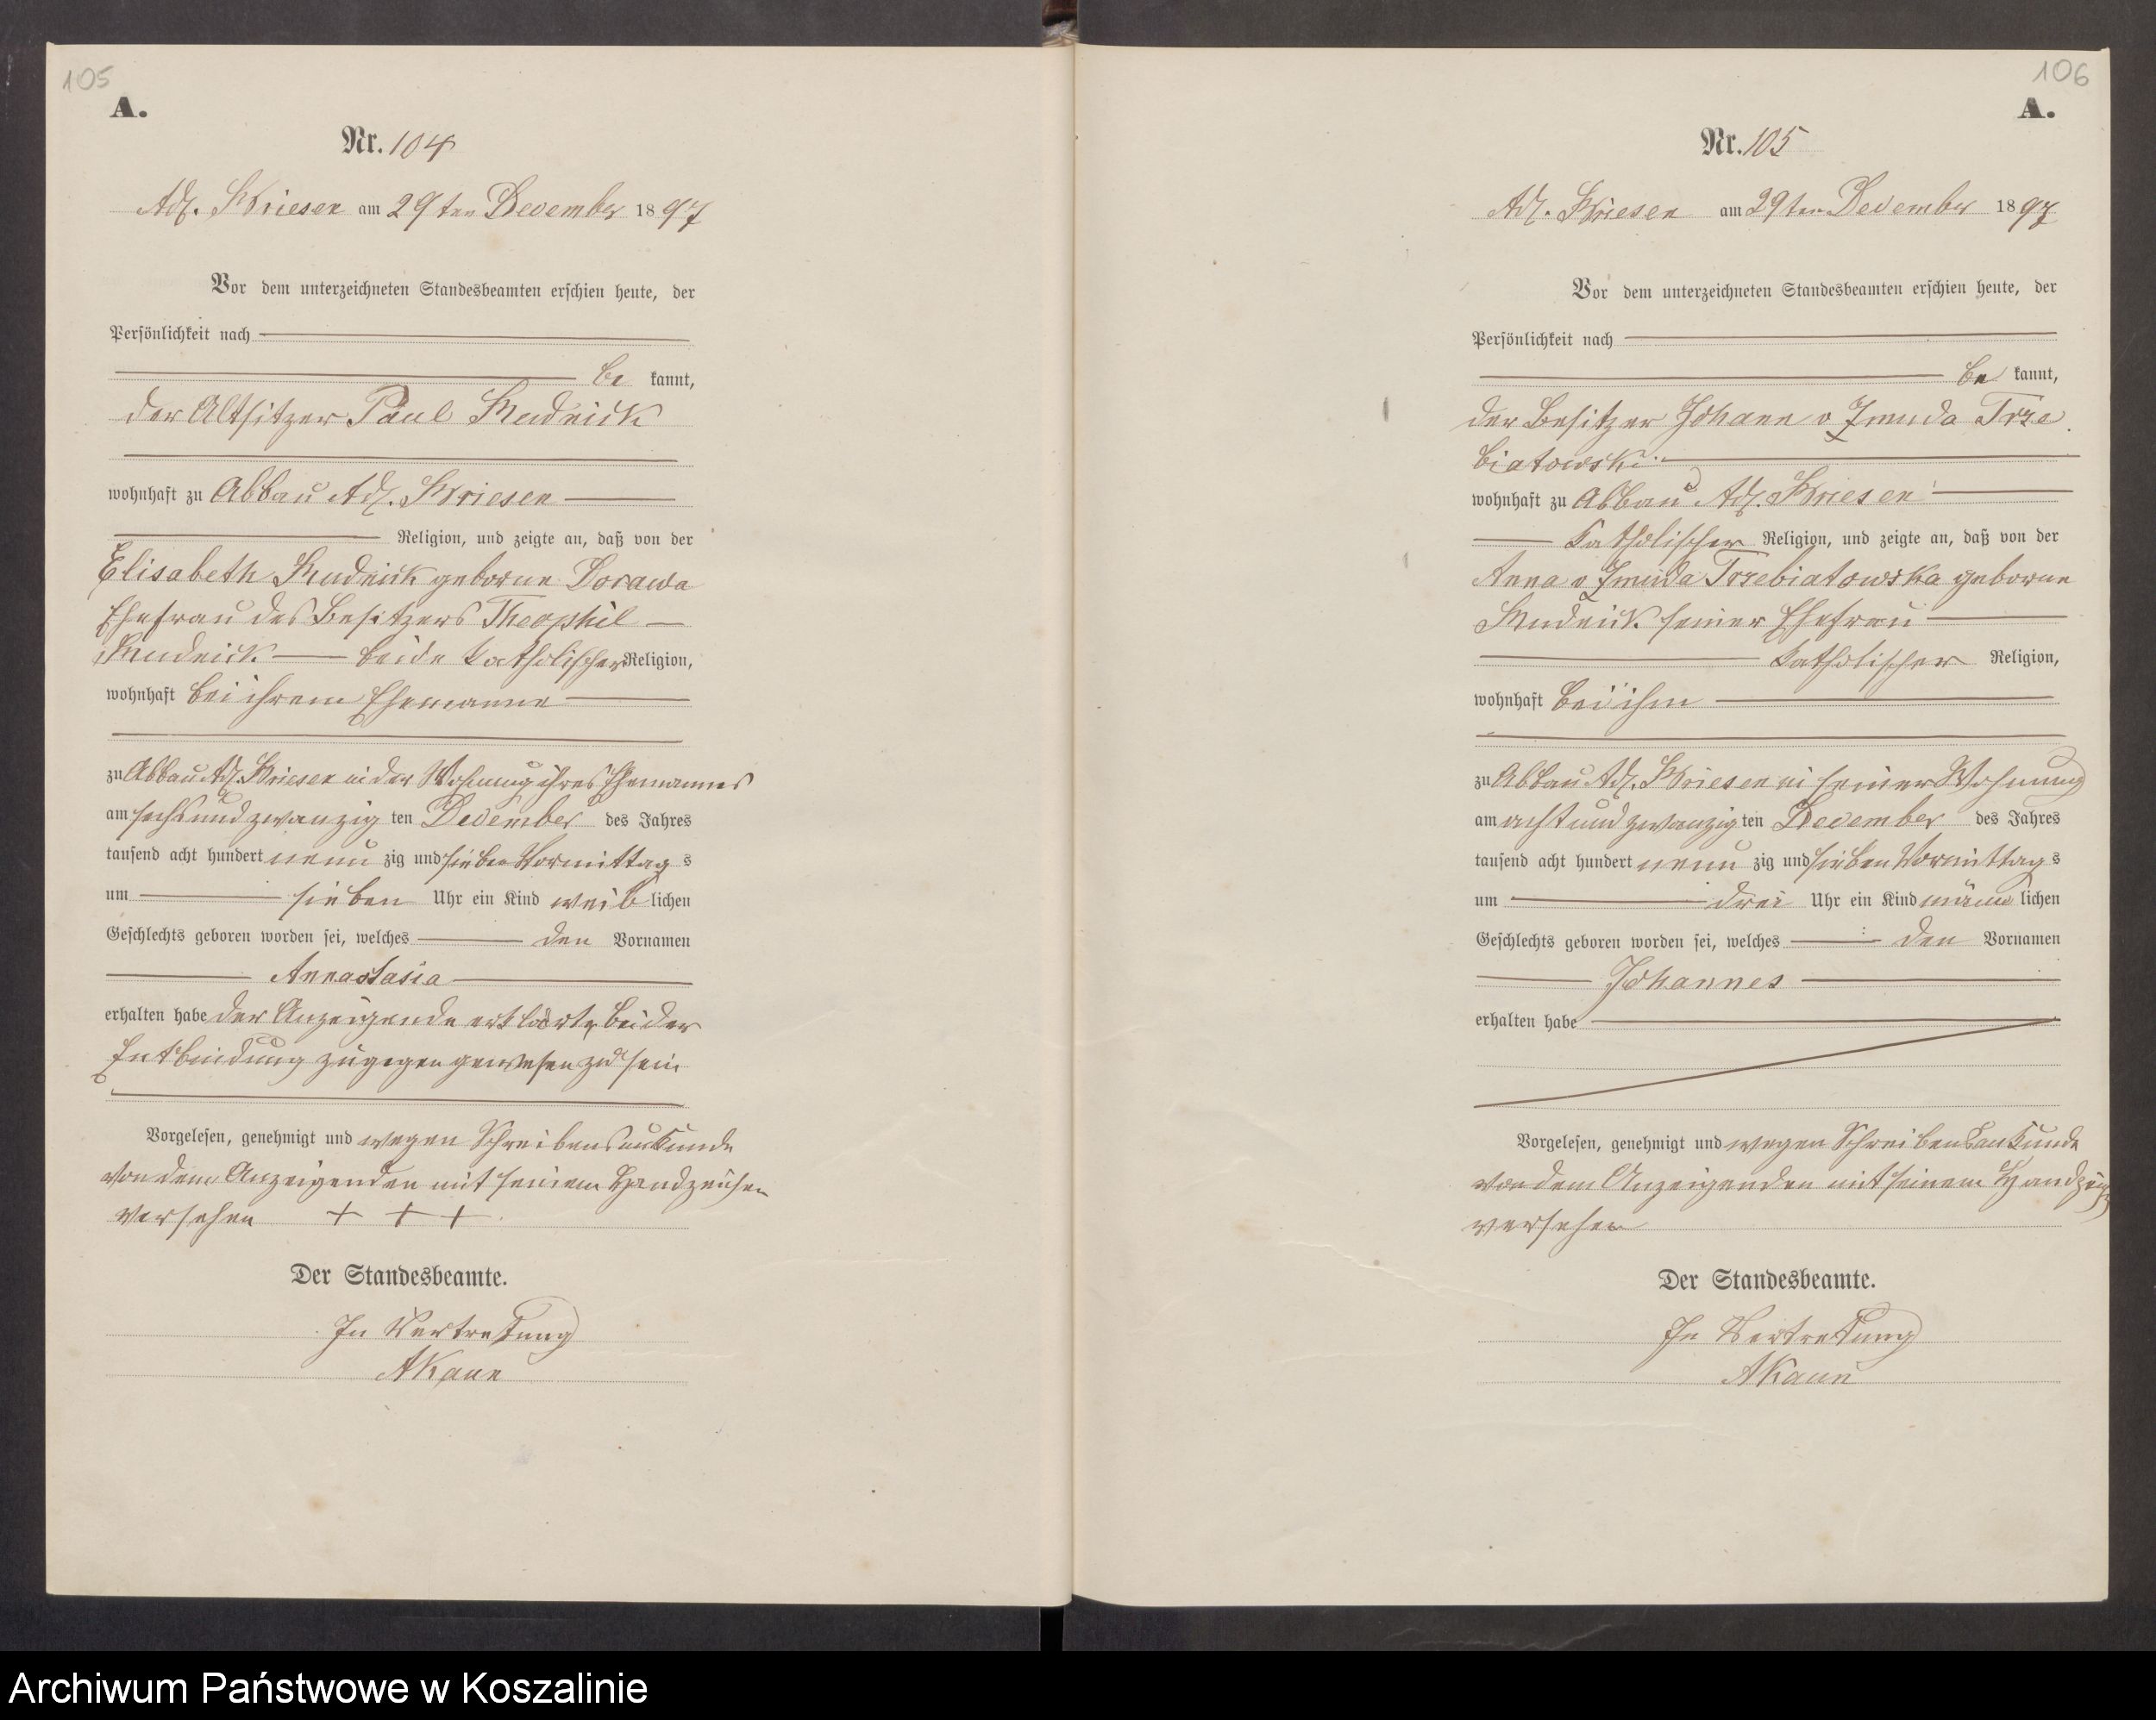 105
A.
Nr. 104
Adl. Briesen am 29ten December 1897
Vor dem unterzeichneten Standesbeamten erschien heute, der
Persönlichkeit nach
be kannt,
der Altsitzer Paul Mudrick
wohnhaft zu Abbau Adl. Briesen
Religion, und zeigte an, daß von der
Elisabeth Mudrick geborne Dorawa
Ehefrau des Besitzers Theophil
Mudrick beide katholischer Religion,
wohnhaft bei ihrem Ehemanne
zu Abbau Adl. Briesen in der Wohnung ihres Ehemannes
am sechsundzwanzig ten December des Jahres
tausend acht hundert neun zig und sieben Vormittag s
um sieben Uhr ein Kind weib lichen
Geschlechts geboren worden sei, welches den Vornamen
Annastasia
erhalten habe der Anzeigende erklärte, bei der
Entbindung zugegen gewesen zu sein
Vorgelesen, genehmigt und wegen Schreibensunkunde
von dem Anzeigenden mit seinem Handzeichen
versehen + + +
Der Standesbeamte.
In Vertretung
AKaun
106
A.
Nr. 105
Adl. Briesen am 29ten December 1897
Vor dem unterzeichneten Standesbeamten erschien heute, der
Persönlichkeit nach
be kannt,
der Besitzer Johann v Zmuda Trze
biatowski
wohnhaft zu Abbau Adl. Briesen
katholischer Religion, und zeigte an, daß von der
Anna v Zmuda Trzebiatowska geborne
Mudrick seiner Ehefrau
katholischer Religion,
wohnhaft bei ihm
zu Abbau Adl. Briesen in seiner Wohnung
am achtundzwanzig ten December des Jahres
tausend acht hundert neun zig und sieben Vormittag s
um drei Uhr ein Kind männ lichen
Geschlechts geboren worden sei, welches den Vornamen
Johannes
erhalten habe
Vorgelesen, genehmigt und wegen Schreibensunkunde
von dem Anzeigenden mit seinem
versehen
Der Standesbeamte.
In Vertretung
AKaun
Archiwum Państwowe w Koszalinie